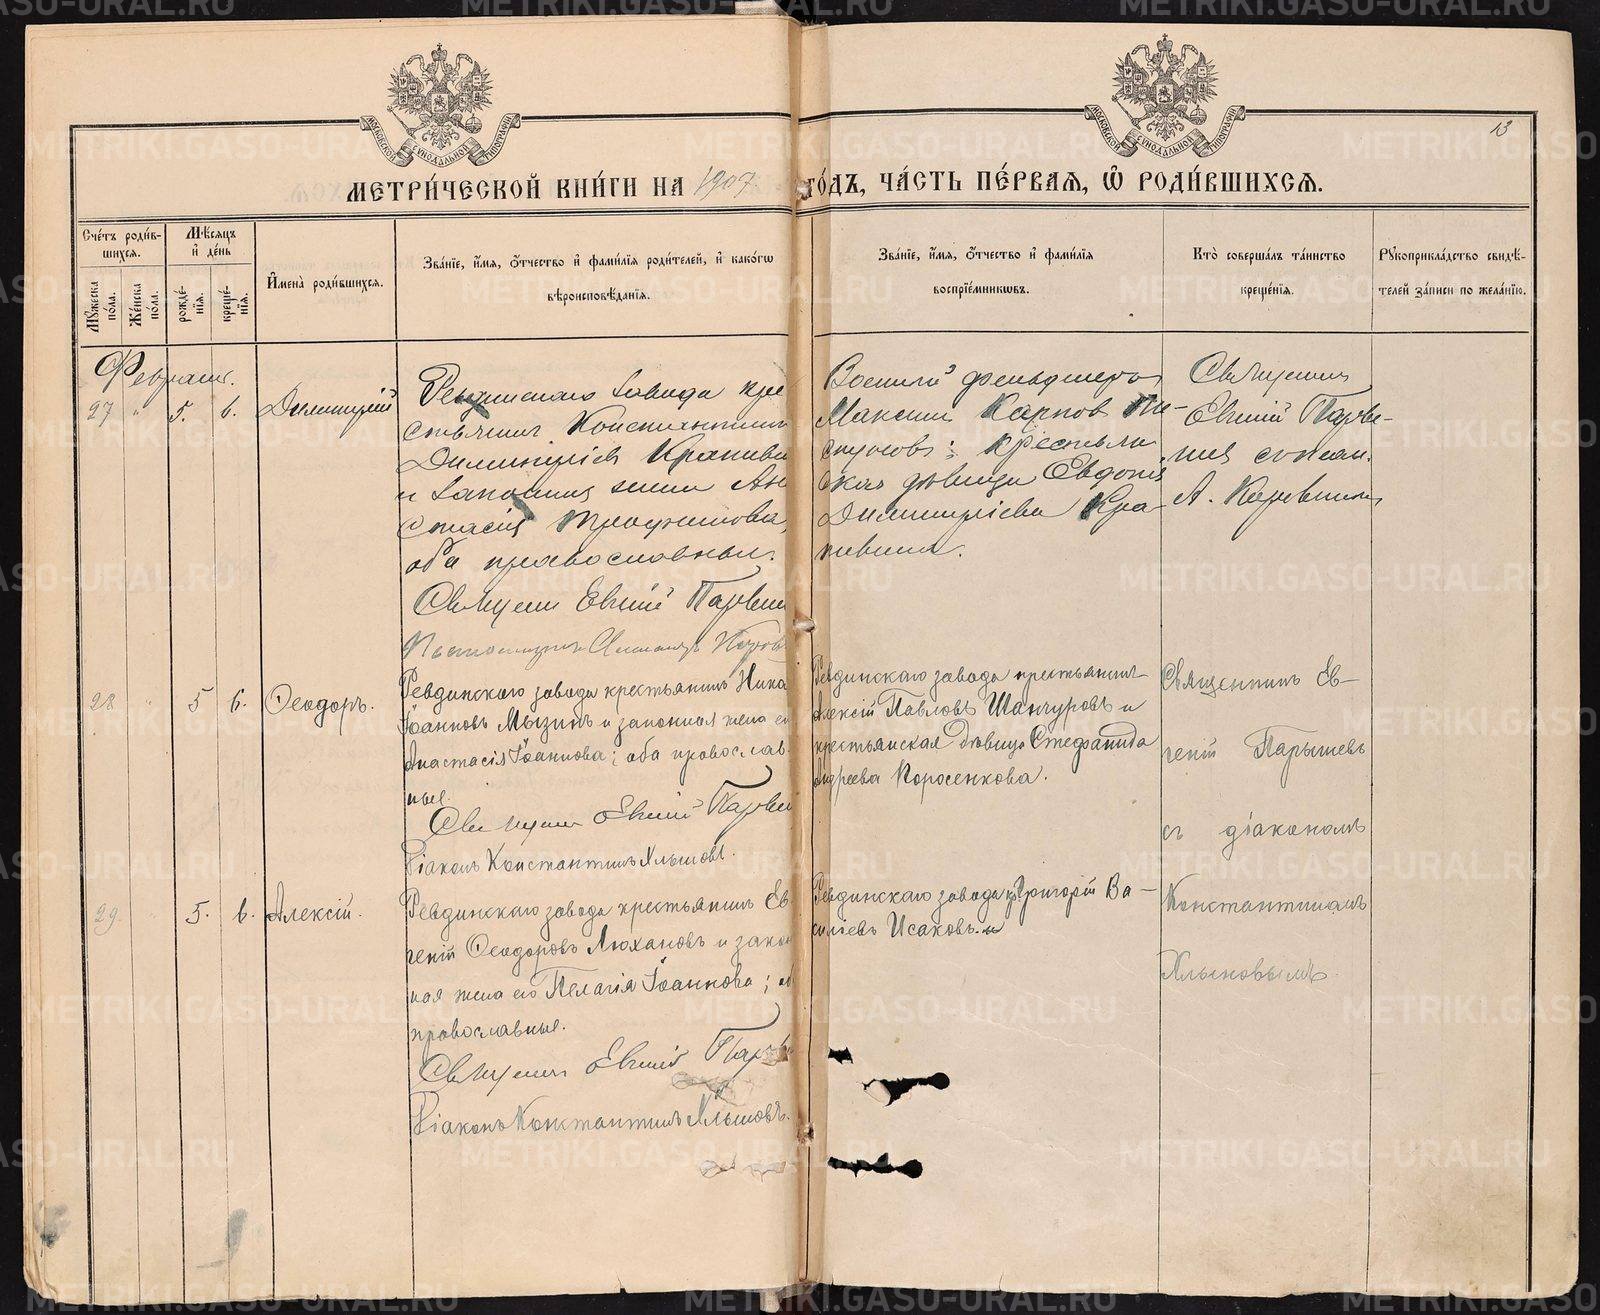 МОСКОВСКОЙ СУНОДАЛЬНОЙ ТИПОГРАФІИ
МОСКОВСКОЙ СУНОДАЛЬНОЙ ТИПОГРАФІИ
13
МЕТРИ́ЧЕСКОЙ КНИ́ГИ НА 1907 го́дъ, ЧА́СТЬ ПЕ́РВАЯ, Ѡ҆ РОДИ́ВШИХСѦ.
Сче́тъ роди́в-
шихсѧ.
Мꙋ́жеска по́ла.
Же́нска по́ла.
Мѣ́сѧцъ
и҆ де́нь
рожде́-
нїѧ.
креще́-
нїѧ.
И҆мена̀ роди́вшихсѧ.
Зва́нїе, и҆́мѧ, ѻ҆́тчество и҆ фами́лїѧ роди́телей, и҆ како́гѡ
вѣроисповѣ́данїѧ.
Зва́нїе, и҆́мѧ, ѻ҆́тчество и҆ фами́лїѧ
воспрїе́мникѡвъ.
Кто̀ соверша́лъ та́инство
креще́нїѧ.
Рꙋкоприкла́дство свидѣ́-
телей за́писи по жела́нїю.
Февраль.
27 " 5. 6. Димитрій
Ревдинскаго завода кре
стьянинъ Константинъ
Димитріевъ Крапиви
и законная жена Ан
стасія Трофимова,
оба православные.
Священ Евгній
Военный фельдшеръ
Максимъ Карпов
крестьян
ская дѣвица Евдокія
Димитріева Кра-
пивина.
Священник
Евгній
28 " 5 6. Ѳеодоръ.
Ревдинскаго завода крестьянинъ Нико
Іоанновъ Мызинъ и законная жена ег
Анастасія Іоаннова; оба православ-
ные.
Священ Евгній
Діаконъ Константинъ Хлыновъ.
Ревдинскаго завода крестьянинъ
Алексій Павловъ Шанчуровъ и
крестьянская дѣвица Стефанида
Андреева Поросенкова.
Священникъ Ев-
геній Парышевъ
съ діакономъ
Константиномъ
Хлыновымъ.
29. 5. 6. Алексій.
Ревдинскаго завода крестьянинъ Ев
геній Ѳеодоровъ Люхановъ и закон
ная жена его Пелагія Іоаннова; об
православные.
Священ Евгній
Діаконъ Константинъ Хлыновъ.
Ревдинскаго завода Григорій Ва-
силіевъ Исаковъ.
METRIKI.GASO-URAL.RU